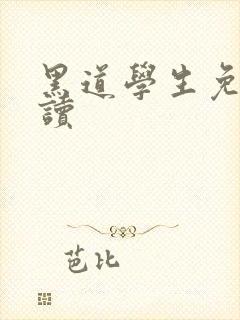 黑道學生免
讀
芭比